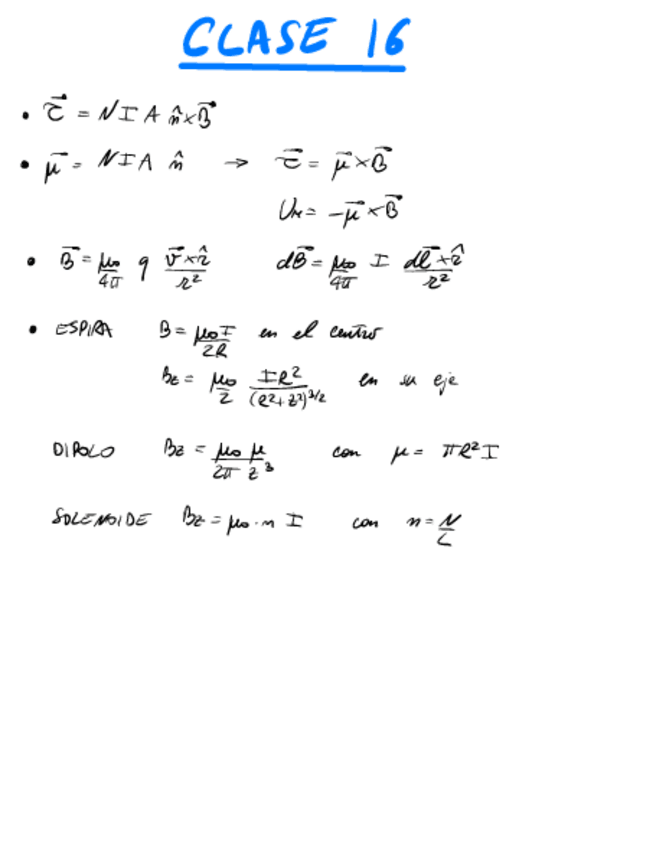 CLASE 16
• $\vec{\tau} = N I A \hat{n} \times \vec{B}$
• $\vec{\mu} = N I A \hat{n} \rightarrow \vec{\tau} = \vec{\mu} \times \vec{B}$
$U_M = -\vec{\mu} \times \vec{B}$
• $\vec{B} = \frac{\mu_0}{4\pi} q \frac{\vec{v} \times \hat{r}}{r^2}$ $d\vec{B} = \frac{\mu_0}{4\pi} I \frac{d\vec{l} \times \hat{r}}{r^2}$
• ESPIRA $B = \frac{\mu_0 I}{2R}$ en el centro
$B_z = \frac{\mu_0}{2} \frac{I R^2}{(R^2 + z^2)^{3/2}}$ en su eje
DIPOLO $B_z = \frac{\mu_0}{2\pi} \frac{\mu}{z^3}$ con $\mu = \pi R^2 I$
SOLENOIDE $B_z = \mu_0 \cdot n I$ con $n = \frac{N}{L}$